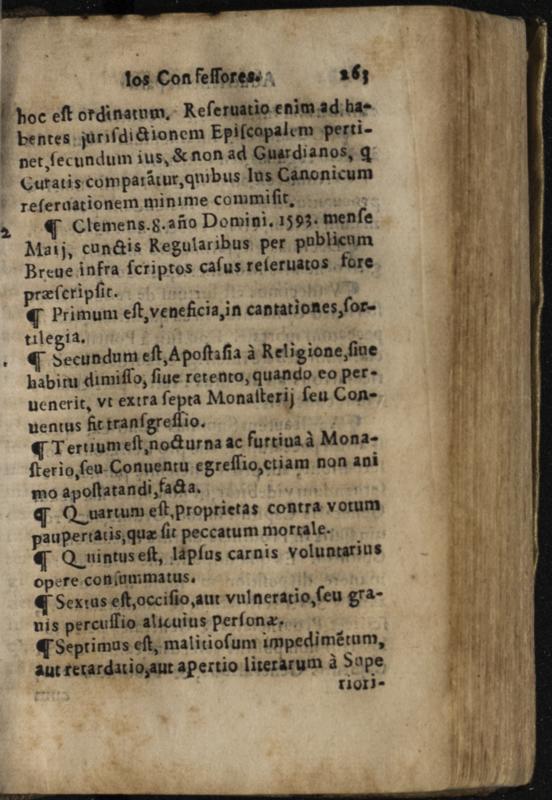 los Confessores. 263
hoc est ordinatum. Reseruatio enim ad ha-
bentes jurisdictionem Episcopalem perti-
net, secundum ius, & non ad Guardianos, q
Curatis comparãtur, quibus Ius Canonicum
reseruationem minime commisit.
2 ¶ Clemens. 8. año Domini. 1593. mense
Maij, cunctis Regularibus per publicum
Breue infra scriptos casus reseruatos fore
præscripsit.
¶ Primum est, veneficia, in cantationes, sor-
tilegia.
¶ Secundum est, Apostasia à Religione, siue
habitu dimisso, siue retento, quando eo per-
uenerit, vt extra septa Monasterij seu Con-
uentus fit transgressio.
¶ Tertium est, nocturna ac furtiua à Mona-
sterio, seu Conuentu egressio, etiam non ani
mo apostatandi, facta.
¶ Quartum est, proprietas contra votum
paupertatis, quæ sit peccatum mortale.
¶ Quintus est, lapsus carnis voluntarius
opere consummatus.
¶ Sextus est, occisio, aut vulneratio, seu gra-
uis percussio alicuius personæ.
¶ Septimus est, malitiosum impedimẽtum,
aut retardatio, aut apertio literarum à Supe
riori-